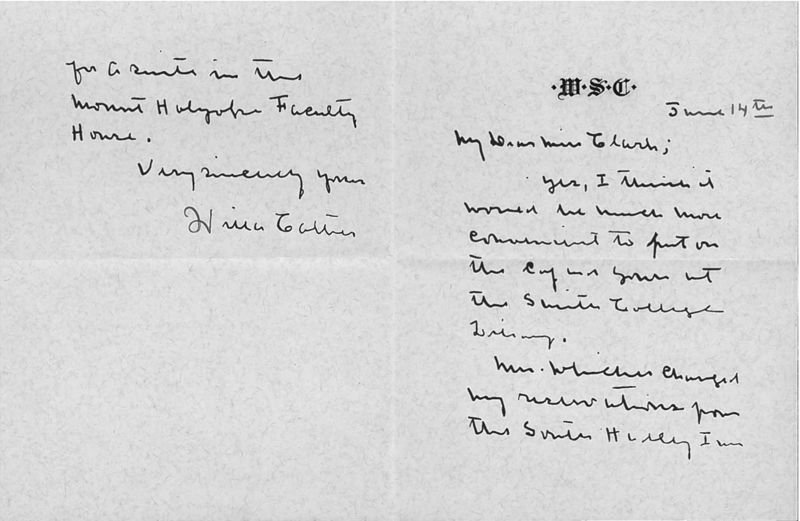 ·W·S·C·
June 14th
My Dear Miss Clark;
Yes, I think it
would be much more
convenient to put on
the cap and gown at
the Smith College
Library.
Mrs. Whicher changed
my reservations from
the South Hadley Inn
for a suite in the
Mount Holyoke Faculty
House.
Very sincerely yours
Willa Cather